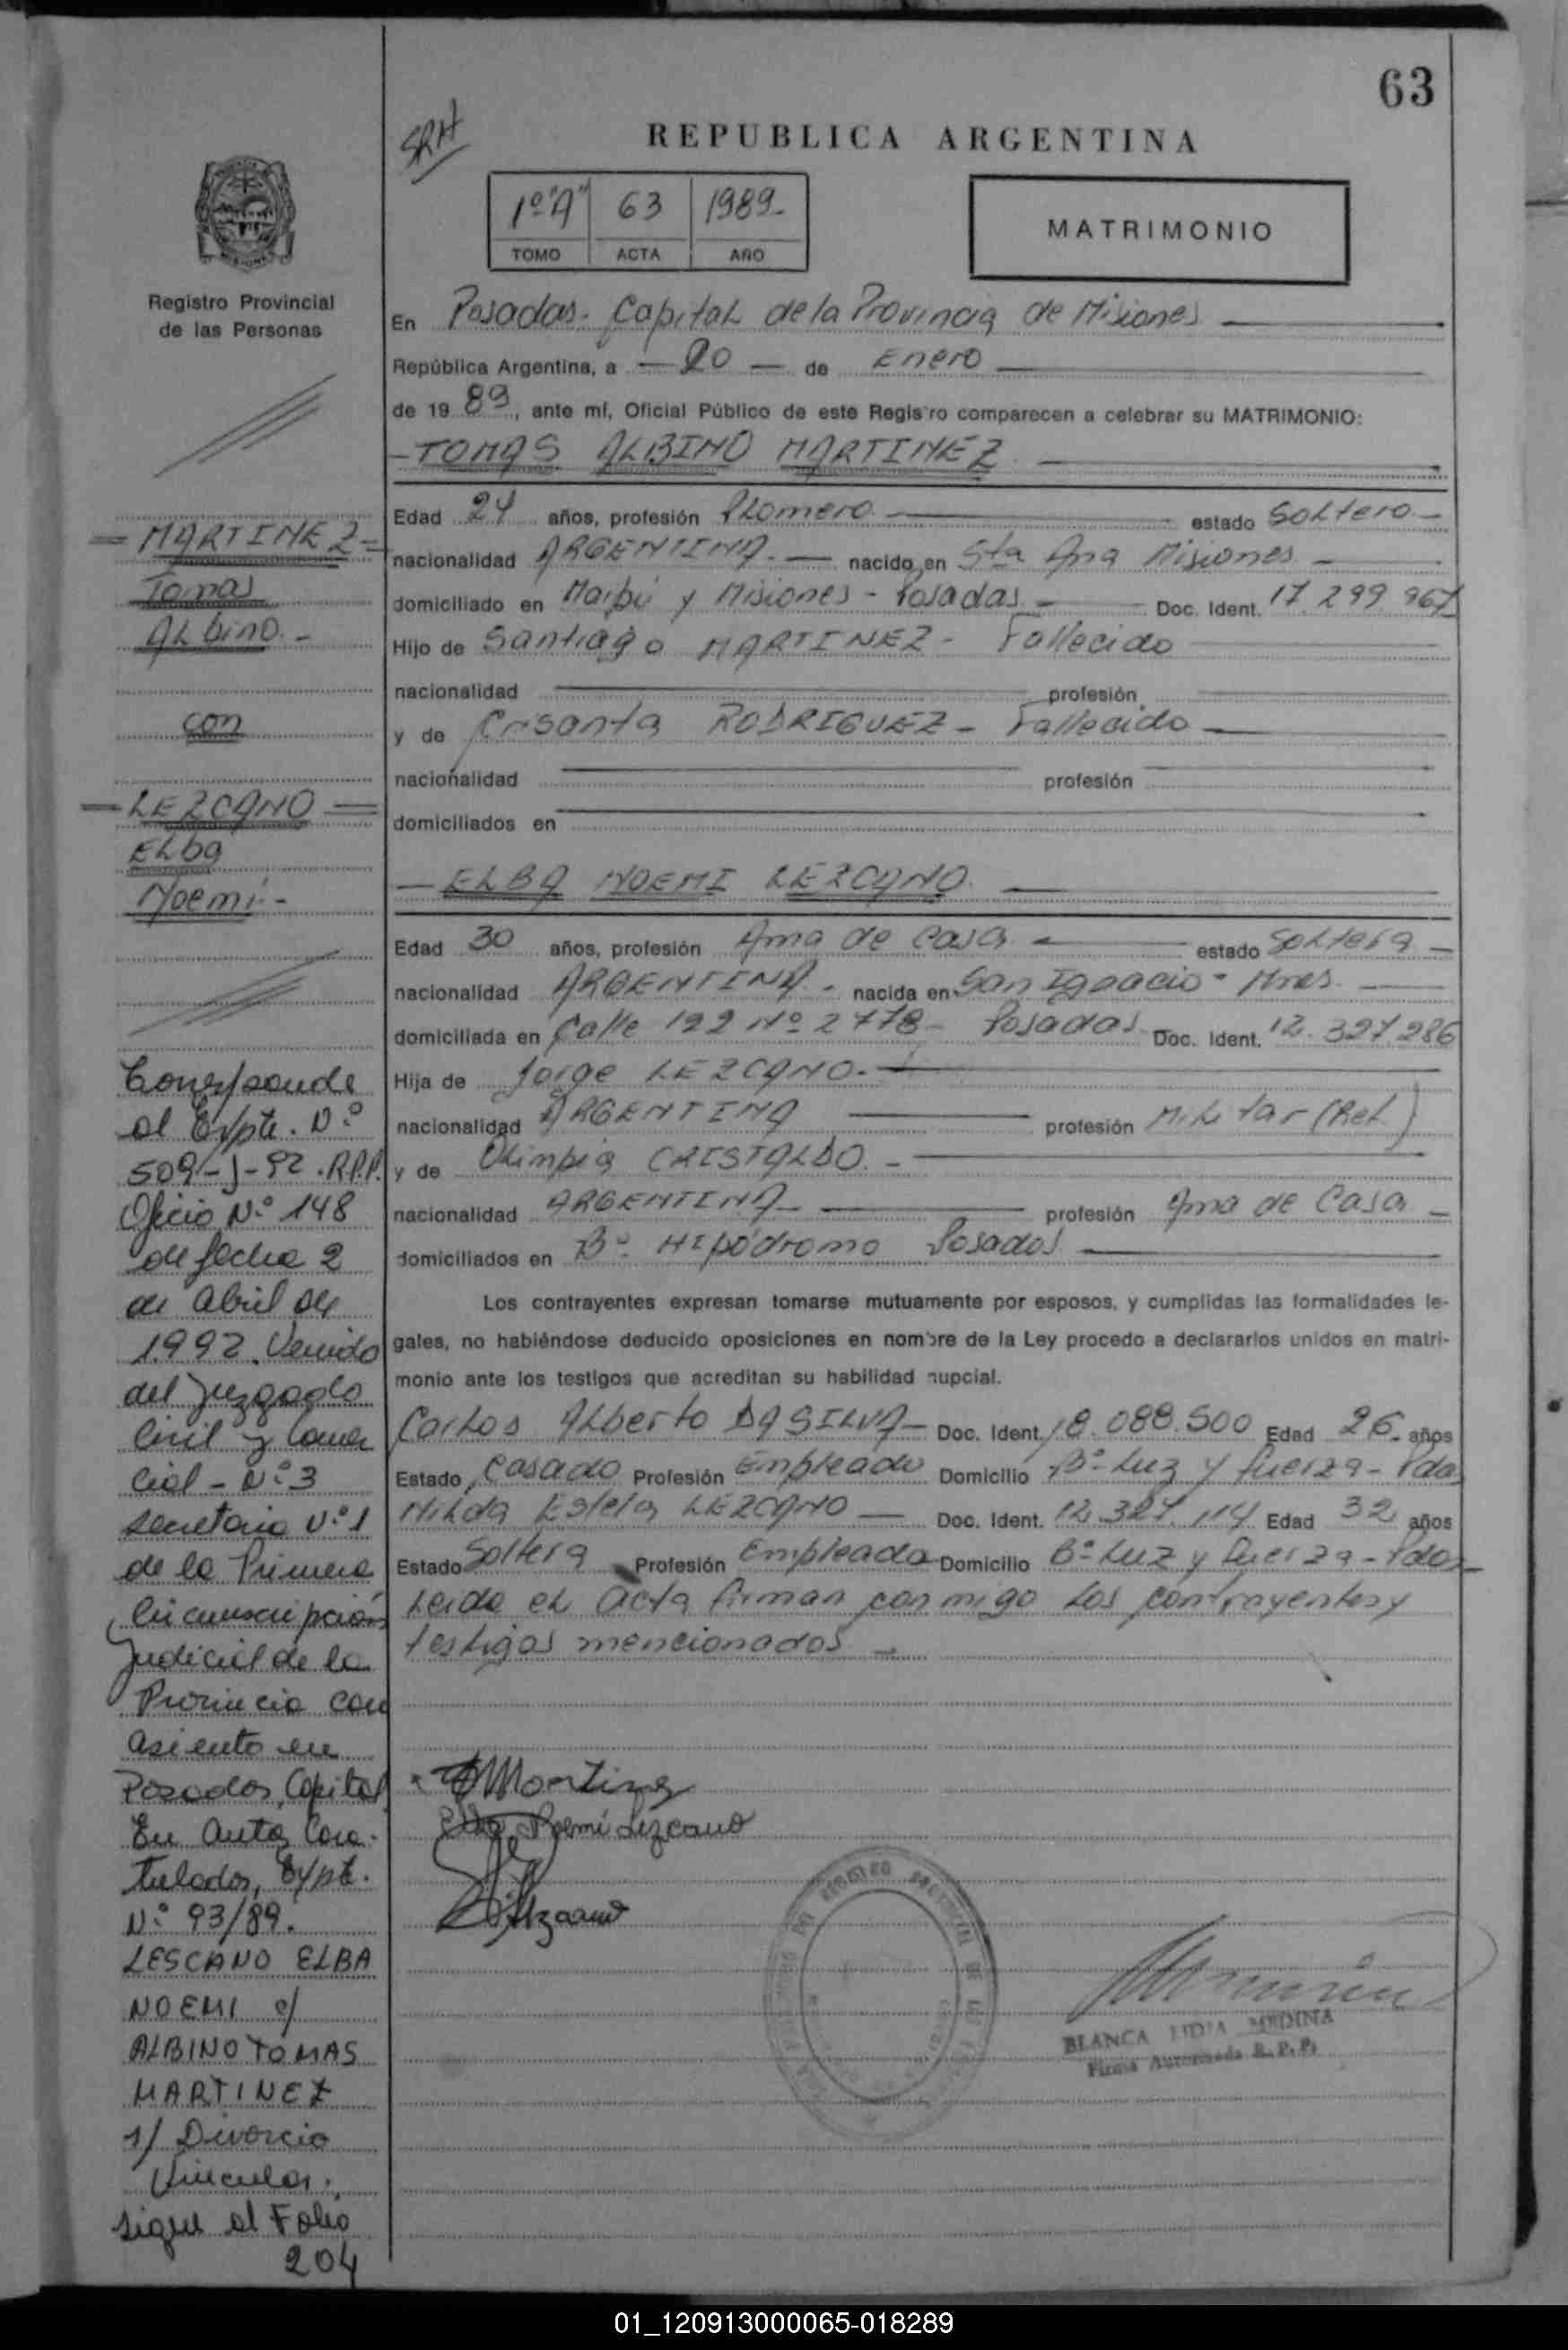 63
SRH
REPUBLICA ARGENTINA
1º"A" 63 1989-
TOMO ACTA AÑO
MATRIMONIO
Registro Provincial
de las Personas
En Posadas. Capital de la Provincia de Misiones
República Argentina, a - 20 - de Enero
de 19 89, ante mí, Oficial Público de este Registro comparecen a celebrar su MATRIMONIO:
- TOMAS ALBINO MARTINEZ
Edad 24 años, profesión Plomero estado Soltero -
nacionalidad ARGENTINA. - nacido en Sta Ana Misiones -
domiciliado en Maipú y Misiones - Posadas - Doc. Ident. 17.299.967
Hijo de Santiago MARTINEZ - Fallecido
nacionalidad profesión
y de Crisanta RODRIGUEZ - Fallecido
nacionalidad profesión
domiciliados en
- ELBA NOEMI LEZCANO
Edad 30 años, profesión Ama de Casa - estado Soltera -
nacionalidad ARGENTINA - nacida en San Ignacio - Mnes.
domiciliada en Calle 122 Nº 2778 - Posadas Doc. Ident. 12.327.286
Hija de Jorge LEZCANO. -
nacionalidad ARGENTINA profesión Militar (Ret.)
y de Olimpia CRISTALDO. -
nacionalidad ARGENTINA - profesión Ama de Casa -
domiciliados en Bº Hipódromo Posadas
Los contrayentes expresan tomarse mutuamente por esposos, y cumplidas las formalidades le-
gales, no habiéndose deducido oposiciones en nombre de la Ley procedo a declararlos unidos en matri-
monio ante los testigos que acreditan su habilidad nupcial.
Carlos Alberto DA SILVA - Doc. Ident. 18.088.500 Edad 26 años
Estado Casado Profesión Empleado Domicilio Bº Luz y Fuerza - Pdas
Milda Estela LEZCANO - Doc. Ident. 12.327.114 Edad 32 años
Estado Soltera Profesión Empleada Domicilio Bº Luz y Fuerza - Pdas -
Leida el Acta firman conmigo los contrayentes y
testigos mencionados -
Martinez
Elba Noemi Lezcano
Lezcano
BLANCA LIDIA MEDINA
Firma Autorizada R. P. P.
= MARTINEZ =
Tomas
Albino. -
con
= LEZCANO =
Elba
Noemi. -
Corresponde
al Expte. Nº
509-J-92. R.P.P.
Oficio Nº 148
de fecha 2
de Abril de
1.992. Venido
del Juzgado
Civil y Comer
cial - Nº 3
Secretaria Nº 1
de la Primera
Circunscripción
Judicial de la
Provincia con
asiento en
Posadas, Capital
En autos Cara-
tulados, Expte.
Nº 93/89.
LESCANO ELBA
NOEMI c/
ALBINO TOMAS
MARTINEZ
s/ Divorcio
Vincular.
Sigue al Folio
204
01_120913000065-018289